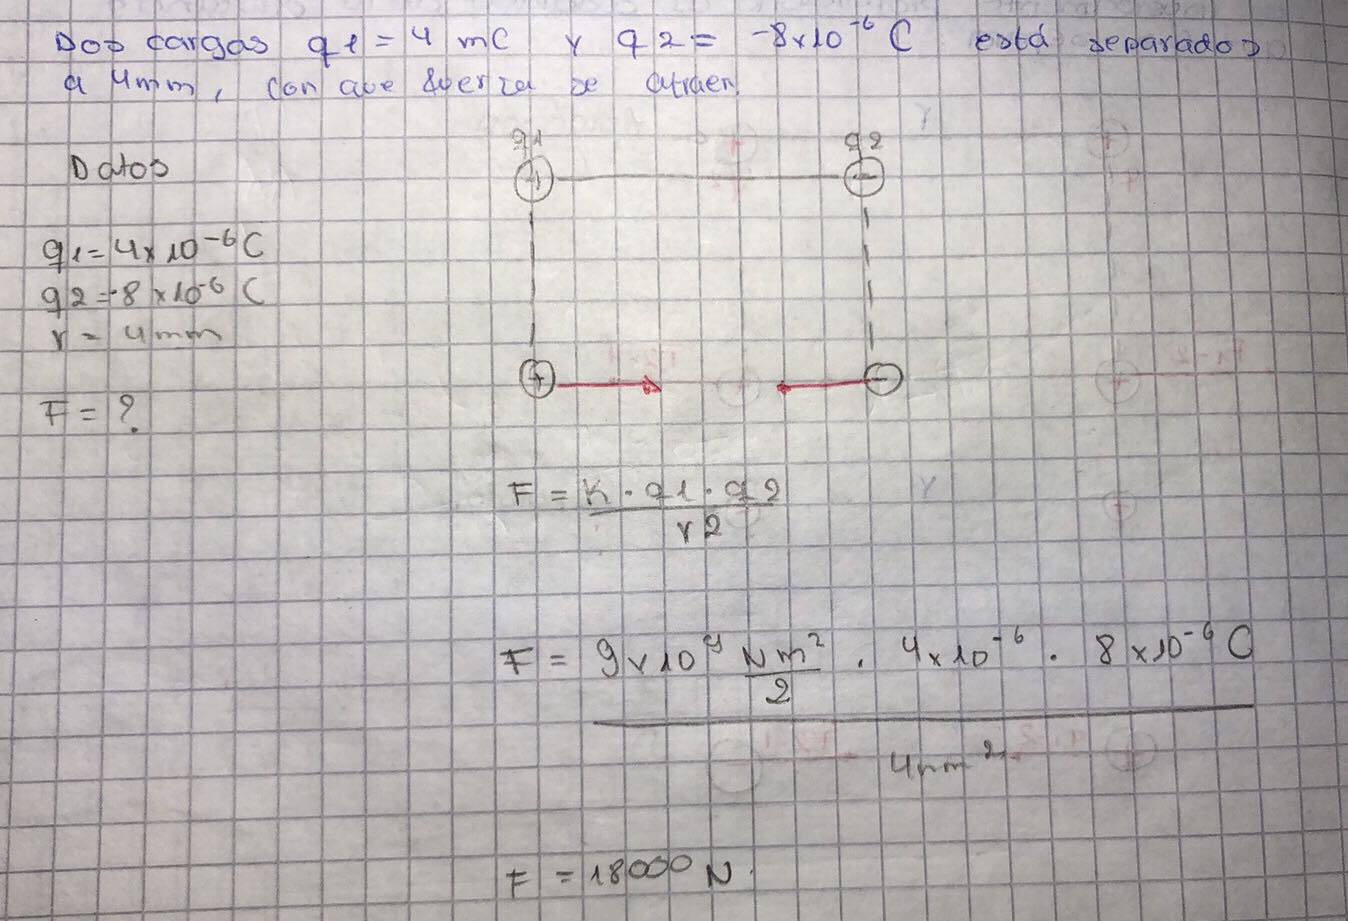 Dos cargas q1 = 4 mC y q2 = -8x10⁻⁶ C está separados
a 4mm, con que fuerza se atraen
q1 q2
Datos
+ -
q1=4x10⁻⁶C
q2=-8x10⁻⁶ C
r = 4mm
+ -
F = ?
F = K . q1 . q2
r2
F = 9x10⁹ Nm² . 4x10⁻⁶ . 8x10⁻⁶ C
2
4mm²
F = 18000 N